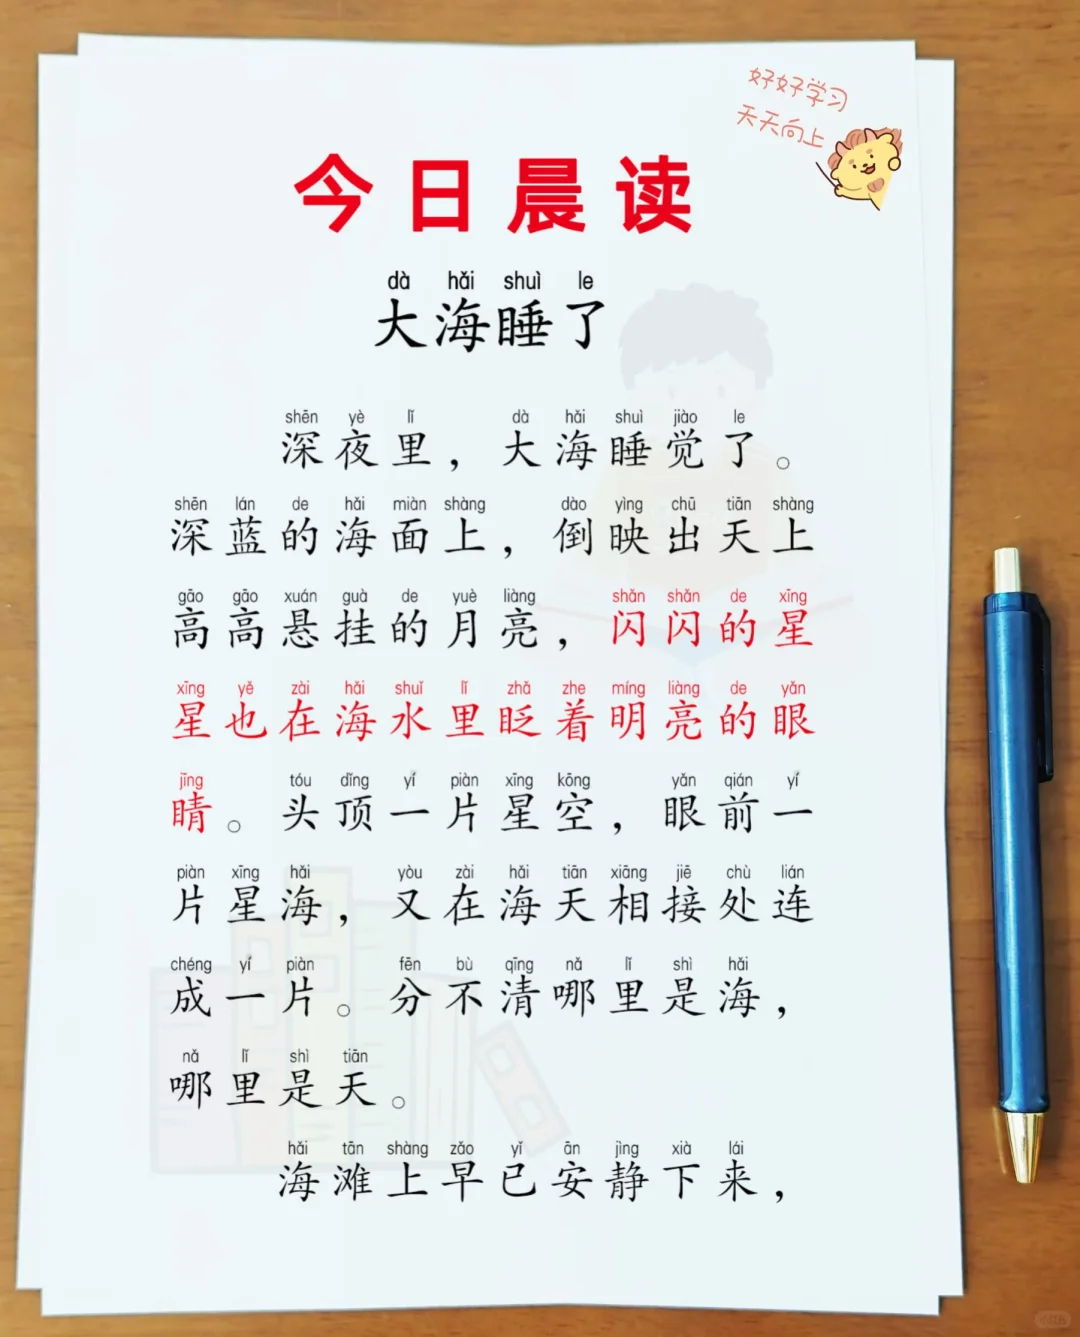 好好学习
天天向上
今日晨读
dà hǎi shuì le
大海睡了
shēn yè lǐ dà hǎi shuì jiào le
深夜里，大海睡觉了。
shēn lán de hǎi miàn shàng dào yìng chū tiān shàng
深蓝的海面上，倒映出天上
gāo gāo xuán guà de yuè liàng shǎn shǎn de xīng
高高悬挂的月亮，闪闪的星
xīng yě zài hǎi shuǐ lǐ zhǎ zhe míng liàng de yǎn
星也在海水里眨着明亮的眼
jīng tóu dǐng yí piàn xīng kōng yǎn qián yí
睛。头顶一片星空，眼前一
piàn xīng hǎi yòu zài hǎi tiān xiāng jiē chù lián
片星海，又在海天相接处连
chéng yí piàn fēn bù qīng nǎ lǐ shì hǎi
成一片。分不清哪里是海，
nǎ lǐ shì tiān
哪里是天。
hǎi tān shàng zǎo yǐ ān jìng xià lái
海滩上早已安静下来，